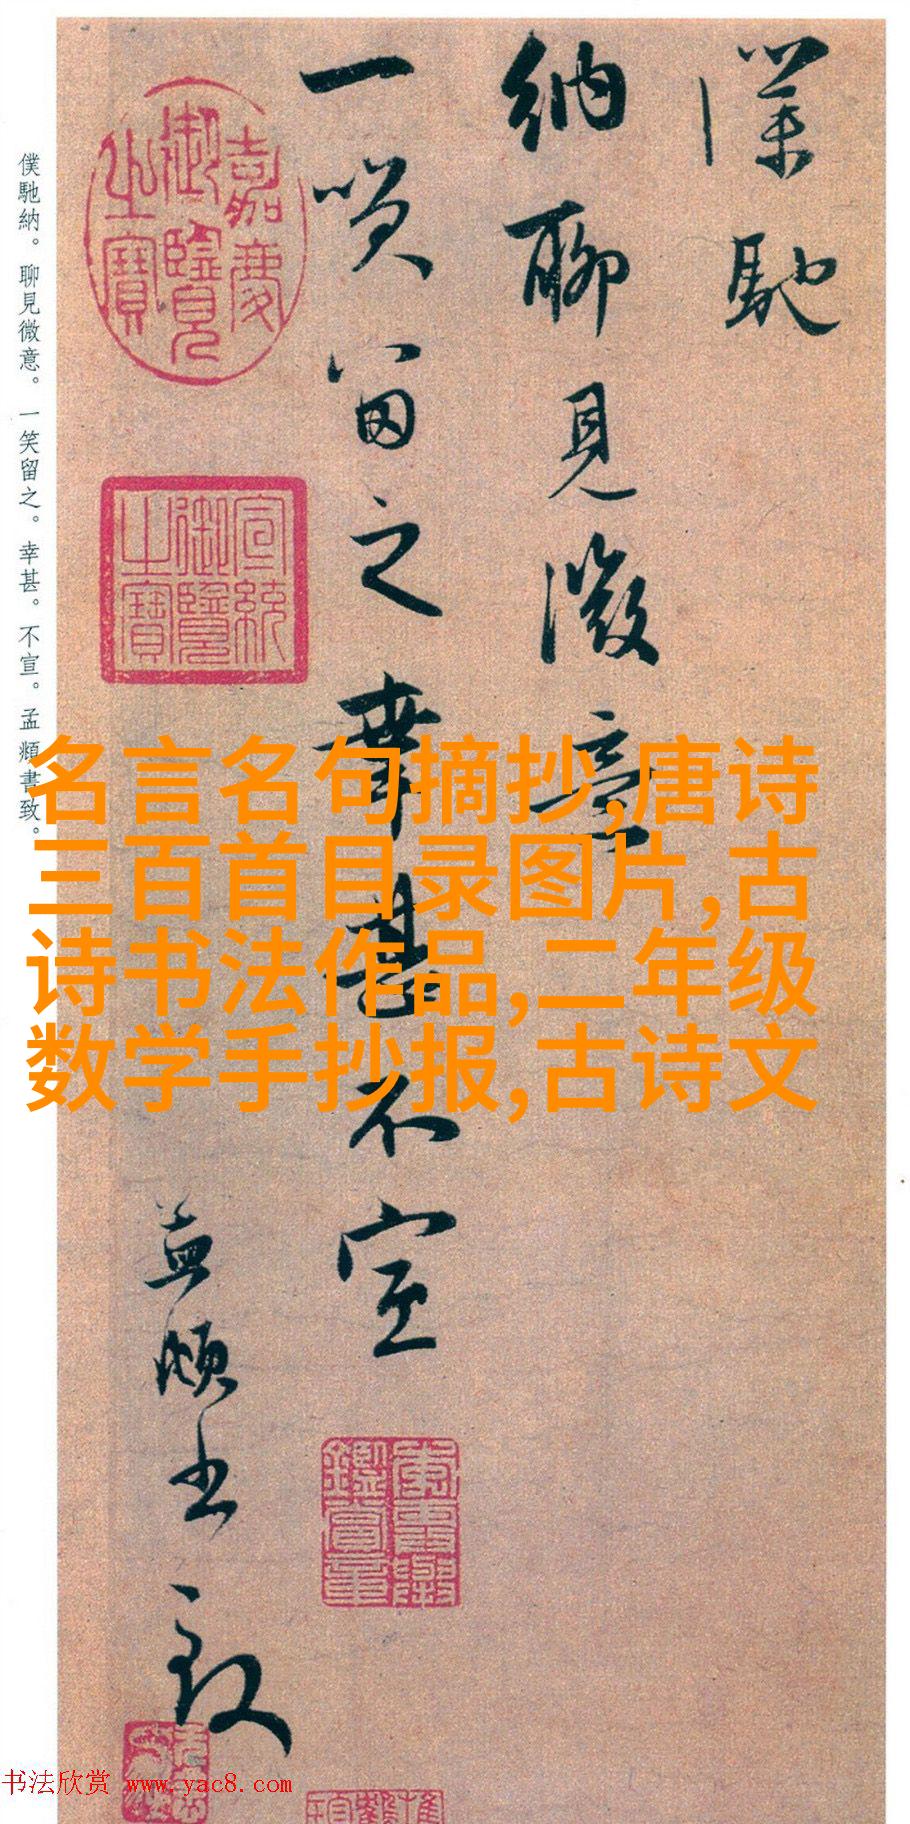 僕馳
納聊見微意
一笑留之幸甚不宣
孟頫書致
嘉慶御覽之寶
宣統御覽之寶
僕馳納。聊見微意。一笑留之。幸甚。不宣。孟頫書致。
名言名句摘抄,唐诗
三百首目录图片,古
诗书法作品,二年级
数学手抄报,古诗文
书法欣赏 www.yac8.com